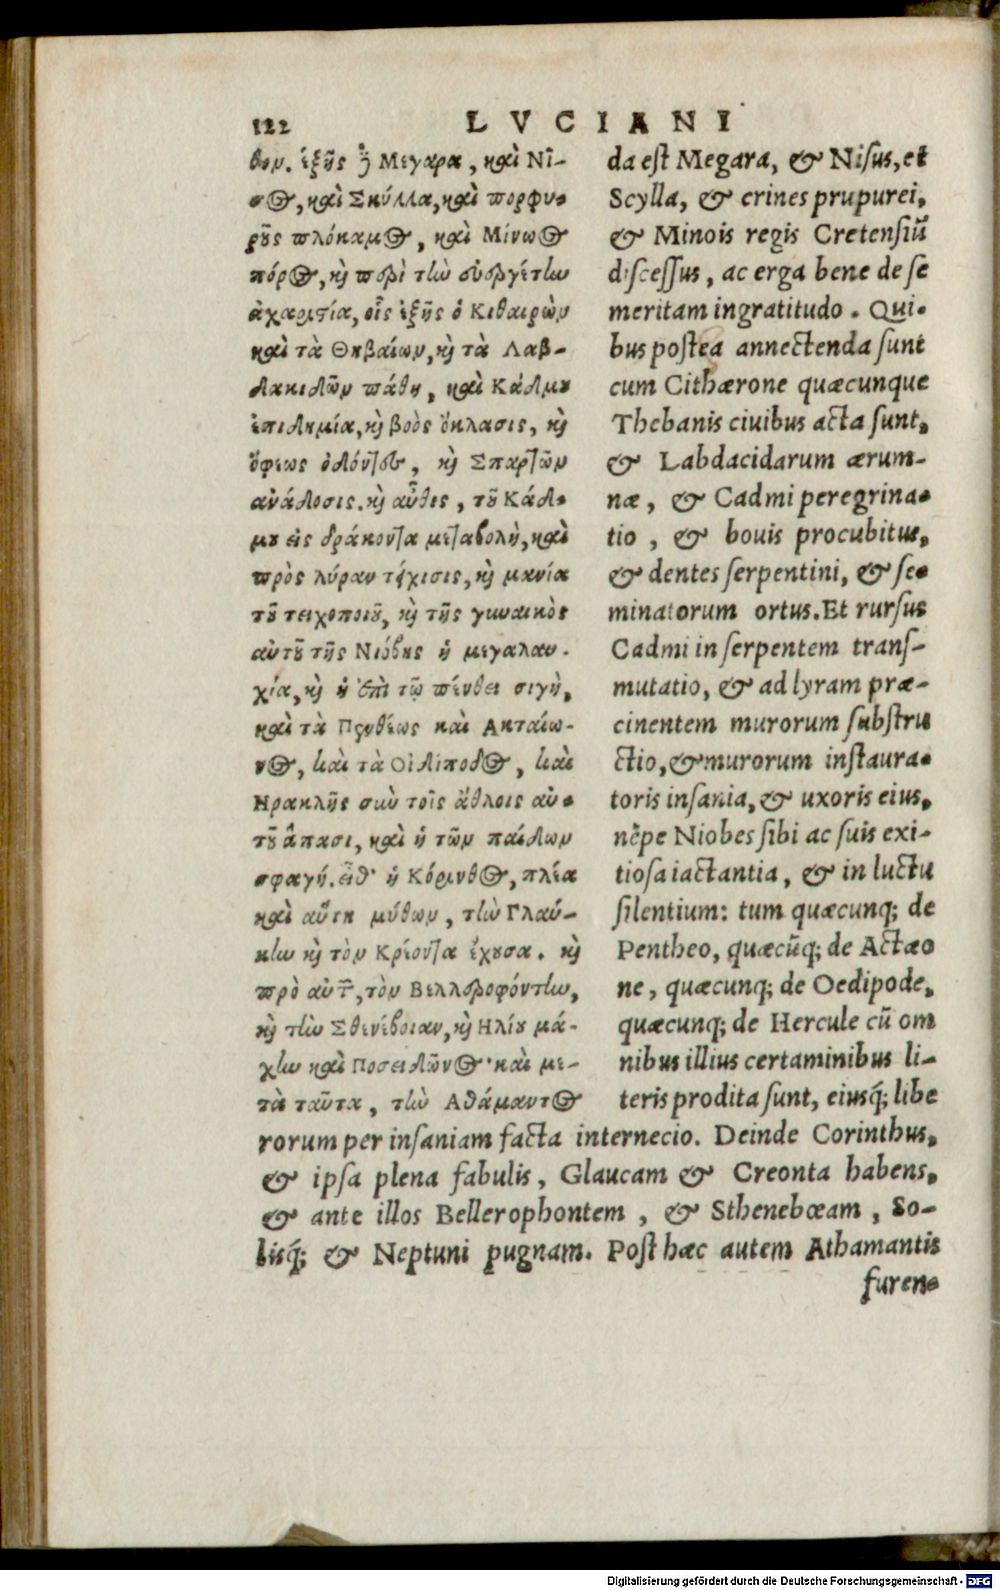 122 LVCIANI
θου. ἑξῆς δὲ Μεγαρα, καὶ Νῖ-
σος, καὶ Σκύλλα, καὶ πορφυ-
ροῦς πλόκαμος, καὶ Μίνωος
πόρος, καὶ περὶ τὴν εὐεργέτην
ἀχαριστία, οἷς ἑξῆς ὁ Κιθαιρὼν
καὶ τὰ Θηβαίων, καὶ τὰ Λαβ-
δακιδῶν πάθη, καὶ Κάδμου
ἐπιδημία, καὶ βοὸς ὄκλασις, καὶ
ὄφεως ὀδόντες, καὶ Σπαρτῶν
ἀνάδοσις. καὶ αὖθις, τοῦ Κάδ-
μου εἰς δράκοντα μεταβολὴ, καὶ
πρὸς λύραν τείχισις, καὶ μανία
τοῦ τειχοποιοῦ, καὶ τῆς γυναικὸς
αὐτοῦ τῆς Νιόβης ἡ μεγαλαυ-
χία, καὶ ἡ ἐπὶ τῷ πένθει σιγὴ,
καὶ τὰ Πενθέως καὶ Ακταίω-
νος, καὶ τὰ Οἰδίποδος, καὶ
Ηρακλῆς σὺν τοῖς ἄθλοις αὐ-
τοῦ ἅπασι, καὶ ἡ τῶν παίδων
σφαγή. εἶθ' ἡ Κόρινθος, πλέα
καὶ αὕτη μύθων, τὴν Γλαύ-
κην καὶ τὸν Κρέοντα ἔχουσα. καὶ
πρὸ αὐτῶν, τὸν Βελλεροφόντην,
καὶ τὴν Σθενέβοιαν, καὶ Ηλίου μά-
χην καὶ Ποσειδῶνος· καὶ με-
τὰ ταῦτα, τὴν Αθάμαντος
da est Megara, & Nisus, et
Scylla, & crines prupurei,
& Minois regis Cretensiū
discessus, ac erga bene de se
meritam ingratitudo. Qui-
bus postea annectenda sunt
cum Cithærone quæcunque
Thebanis ciuibus acta sunt,
& Labdacidarum ærum-
næ, & Cadmi peregrina-
tio, & bouis procubitus,
& dentes serpentini, & se-
minatorum ortus. Et rursus
Cadmi in serpentem trans-
mutatio, & ad lyram præ-
cinentem murorum substru
ctio, & murorum instaura-
toris insania, & uxoris eius,
nēpe Niobes sibi ac suis exi-
tiosa iactantia, & in luctu
silentium: tum quæcunq; de
Pentheo, quæcūq; de Actæo
ne, quæcunq; de Oedipode,
quæcunq; de Hercule cū om
nibus illius certaminibus li-
teris prodita sunt, eiusq́; libe
rorum per insaniam facta internecio. Deinde Corinthus,
& ipsa plena fabulis, Glaucam & Creonta habens,
& ante illos Bellerophontem, & Sthenebœam, So-
lisq́; & Neptuni pugnam. Post hæc autem Athamantis
furen-
Digitalisierung gefördert durch die Deutsche Forschungsgemeinschaft - DFG